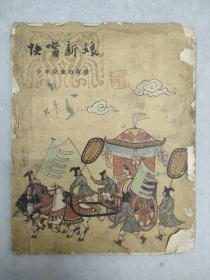 快嘴新娘
少年儿童出版社